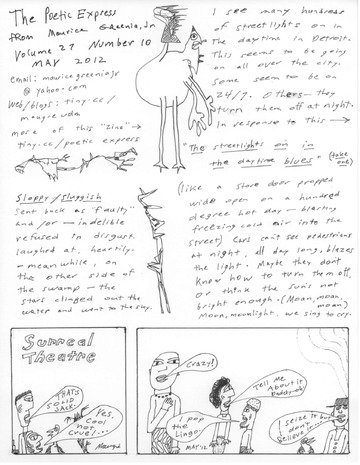 The Poetic Express
from Maurice Greenia, Jr
Volume 27 Number 10
MAY 2012
email: mauricegreeniajr
@ yahoo.com
Web/blogs: tiny.cc/
maugreuda
more of this "zine" →
tiny.cc/poetic express
Sloppy/sluggish
Sent back as faulty
and/or — indelible
refused in disgust.
laughed at, heartily.
— meanwhile, on
the other side of
the swamp — the
stars climbed out the
water and went to the sky.
I see many hundreds
of streetlights on in
the daytime in Detroit.
This seems to be going
on all over the city.
Some seem to be on
24/7. Others— they
turn them off at night.
In response to this →
"The streetlights on in
the daytime blues" (take
one)
(like a store door propped
wide open on a hundred
degree hot day — blasting
freezing cold air into the
street) Cars can't see pedestrians
at night, all day long, blazes
the light. Maybe they don't
know how to turn them off,
or think the sun's not
bright enough. (Moan, moan,
moan, moonlight, we sing to cry.
Surreal
Theatre
THAT'S
SOLID
JACK!
Yes,
cool
not
cruel...
Crazy!
Tell me
About it
Daddy-o!
pop
the
Lingo.
MAY 12
I seize it but
don't
believe...